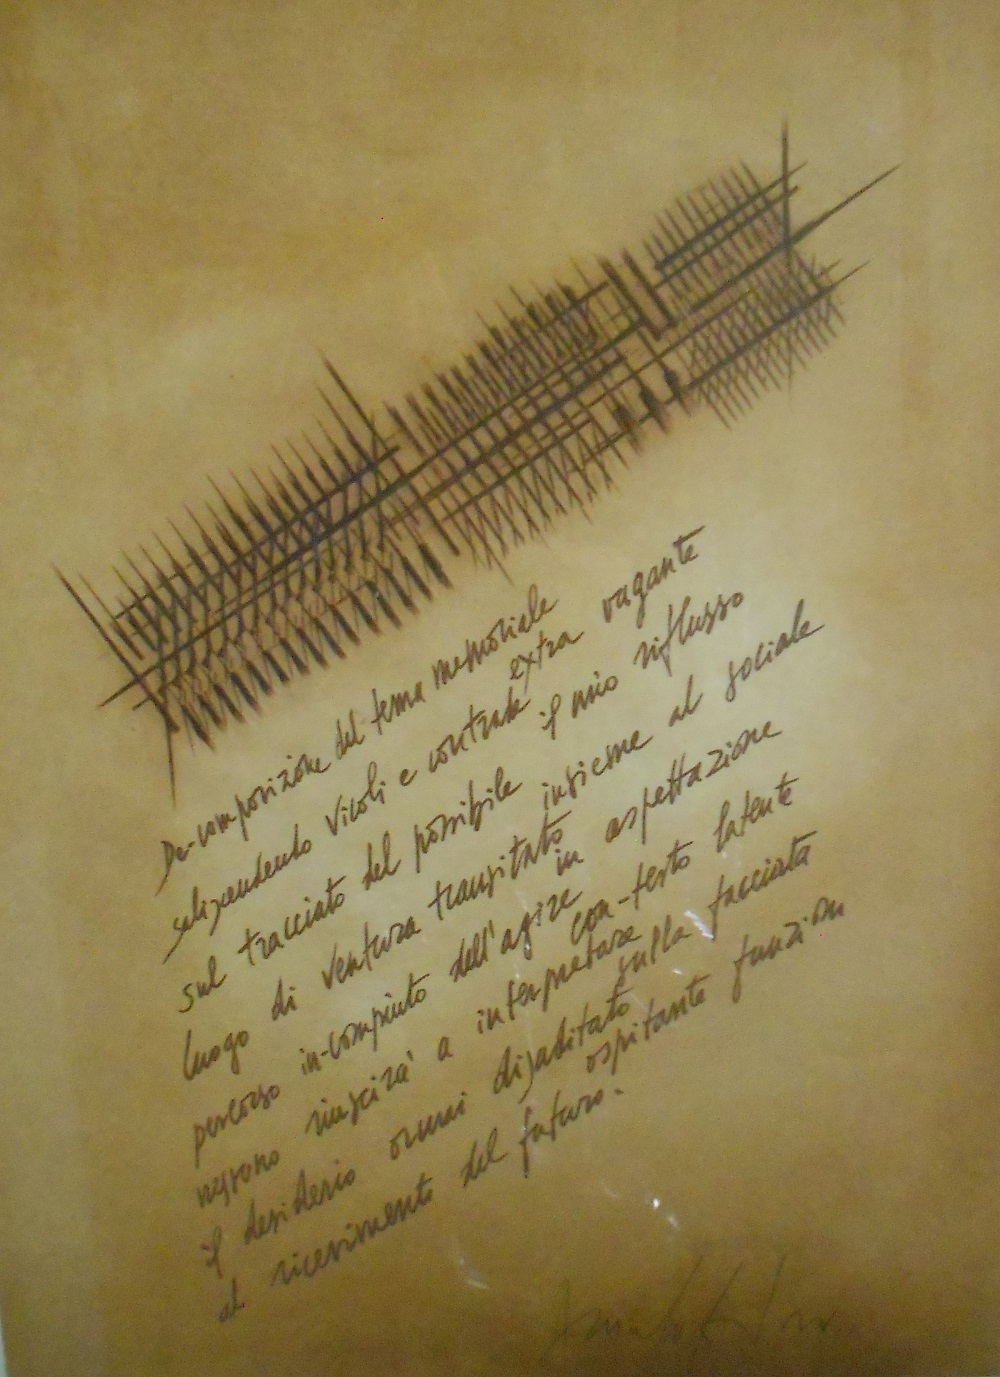 De-composizione del tema memoriale
selciando vicoli e contrade extra vagante
sul tracciato del possibile il mio riflusso
luogo di ventura transitato insieme al sociale
percorso in-compiuto dell'agire in aspettazione
nessuno riuscirà a interpretare con-testo latente
il desiderio ormai disabitato sulla facciata
al ricevimento del futuro. ospitante funzion